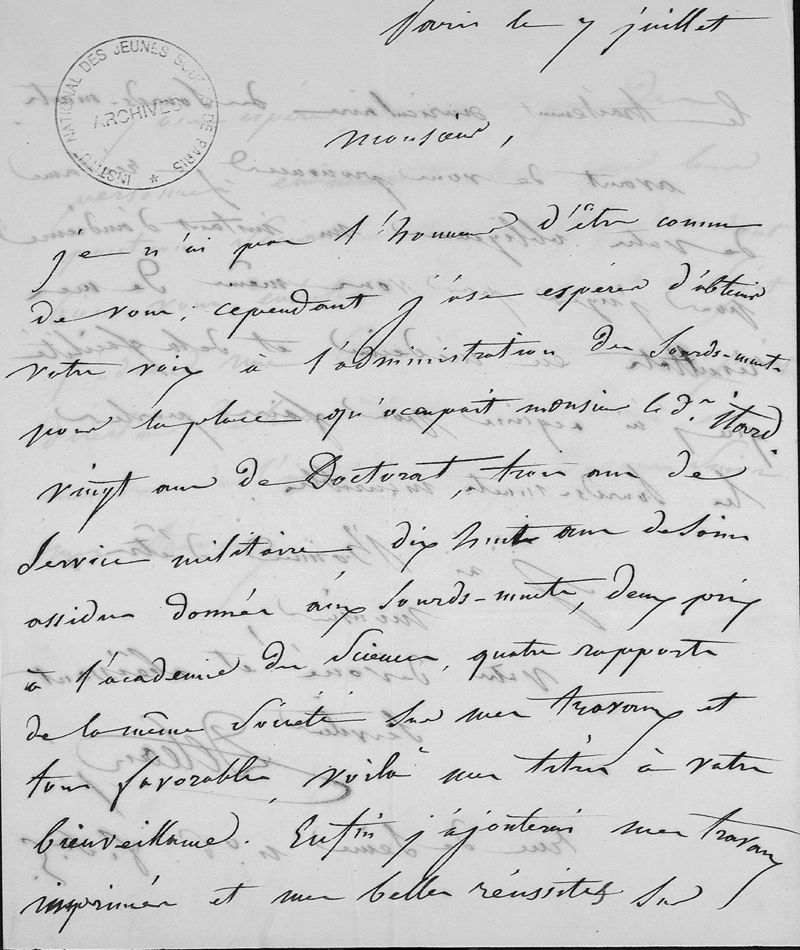 Paris le 7 juillet
INSTITUT NATIONAL DES JEUNES SOURDS DE PARIS *
ARCHIVES
Monsieur,
je n'ai pas l'honneur d'être connu
de vous, cependant j'ose espérer d'obtenir
votre voix à l'administration des Sourds-muets
pour la place qu'occupait monsieur le d.r itard.
vingt ans de Doctorat, trois ans de
Service militaire dix huit ans de soins
assidus donnés aux Sourds-muets, deux prix
à l'académie des Sciences, quatre rapports
de la même Société sur mes travaux et
tous favorables, voilà mes titres à votre
bienveillance. Enfin j'ajouterai mes travaux
imprimés et mes belles réussites sur